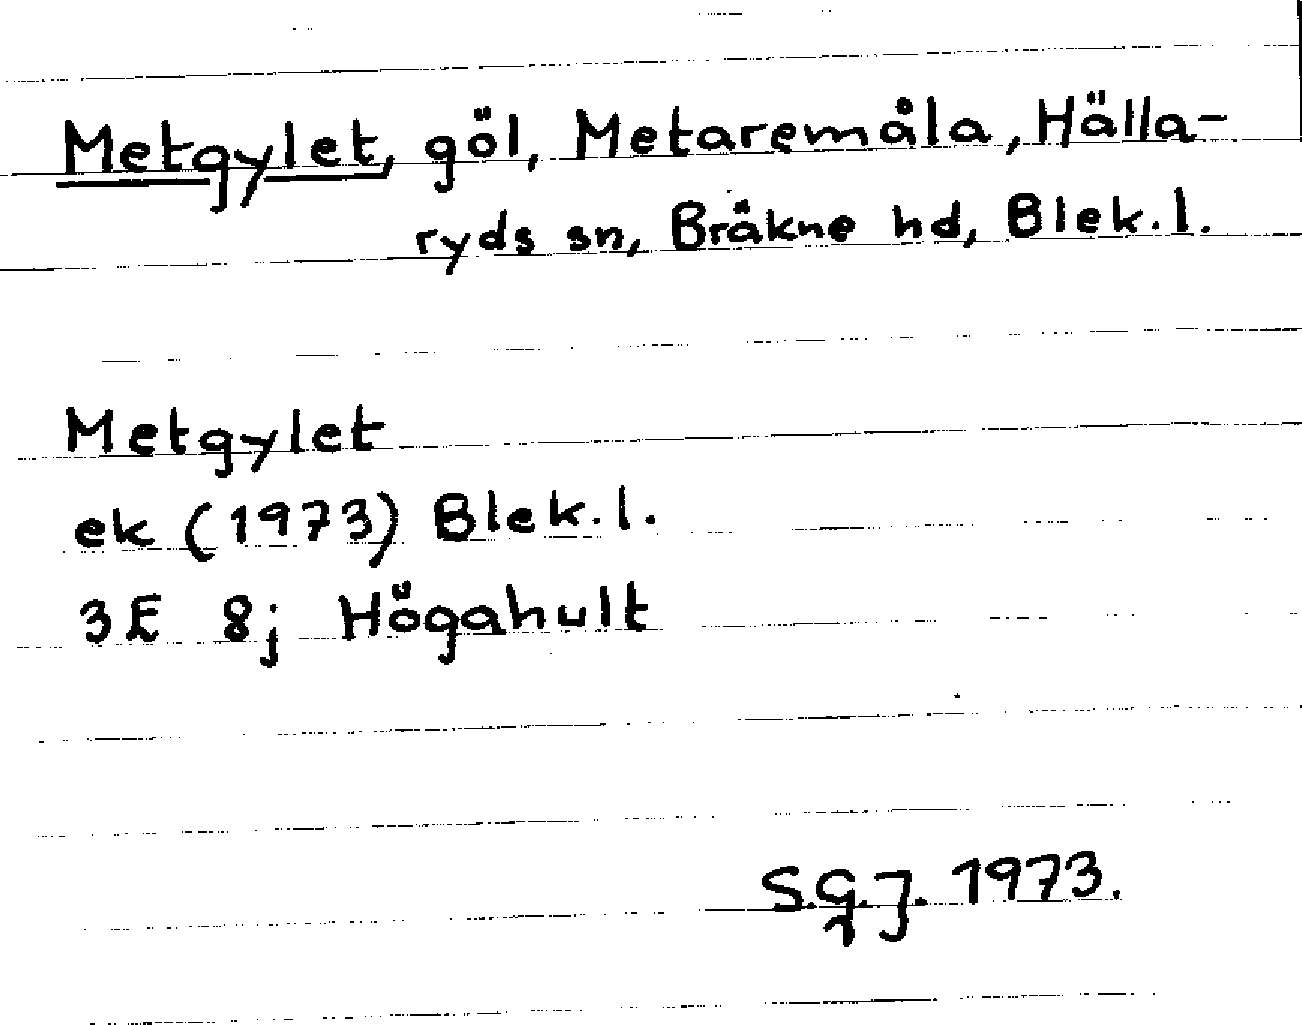 Metgylet, göl, Metaremåla, Hälla-
ryds sn, Bräkne hd, Blek.l.
Metgylet
ek (1973) Blek.l.
3E 8j Högahult
S.G.J. 1973.